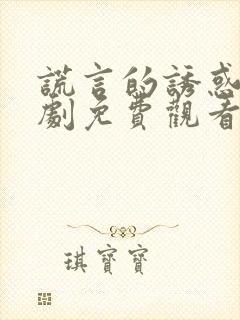 謊言的誘惑
劇免費觀看
琪寶寶